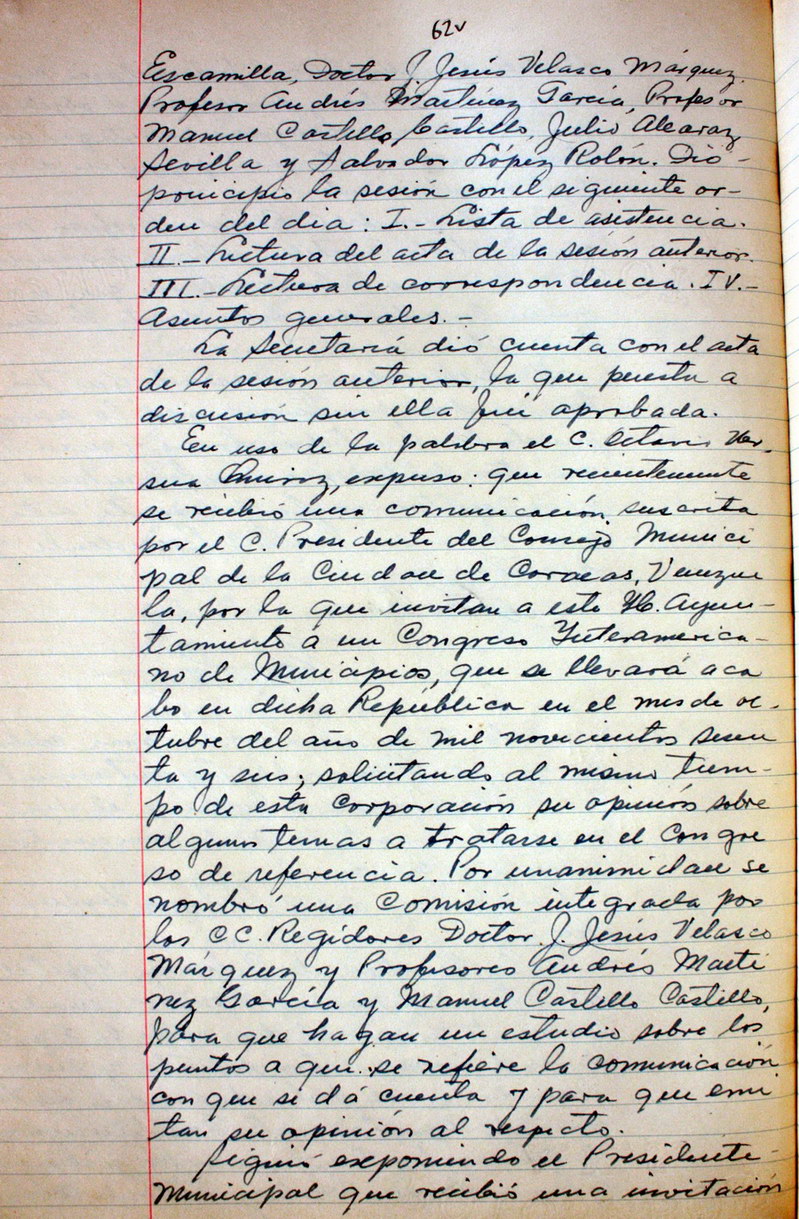 62v
Escamilla, Doctor J. Jesús Velasco Márquez.
Profesor Andrés Martínez García, Profesor
Manuel Castillo Castillo, Julio Alcaraz
Sevilla y Salvador López Rolón. Dió
principio la sesión con el siguiente or-
den del dia: I.- Lista de asistencia.
II.- Lectura del acta de la sesión anterior.
III.- Lectura de correspondencia. IV.-
Asuntos generales. -
La Secretaría dió cuenta con el acta
de la sesión anterior, la que puesta a
discusión sin ella fué aprobada.
En uso de la palabra el C. Octavio
expuso: que recientemente
se recibió una comunicación suscrita
por el C. Presidente del Consejo Munici
pal de la Ciudad de Caracas, Venezue
la, por la que invitan a este H. Ayun-
tamiento a un Congreso Interamerica-
no de Municipios, que se llevará a ca
bo en dicha República en el mes de oc-
tubre del año de mil novecientos sesen
ta y seis; solicitando al mismo tiem-
po de esta Corporación su opinión sobre
algunos temas a tratarse en el Congre
so de referencia. Por unanimidad se
nombró una Comisión integrada por
los CC. Regidores Doctor J. Jesús Velasco
Márquez y Profesores Andrés Martí
nez García y Manuel Castillo Castillo,
para que hagan un estudio sobre los
puntos a que se refiere la comunicación
con que se dá cuenta y para que emi
tan su opinión al respecto.
Siguió exponiendo el Presidente
Municipal que recibió una invitación